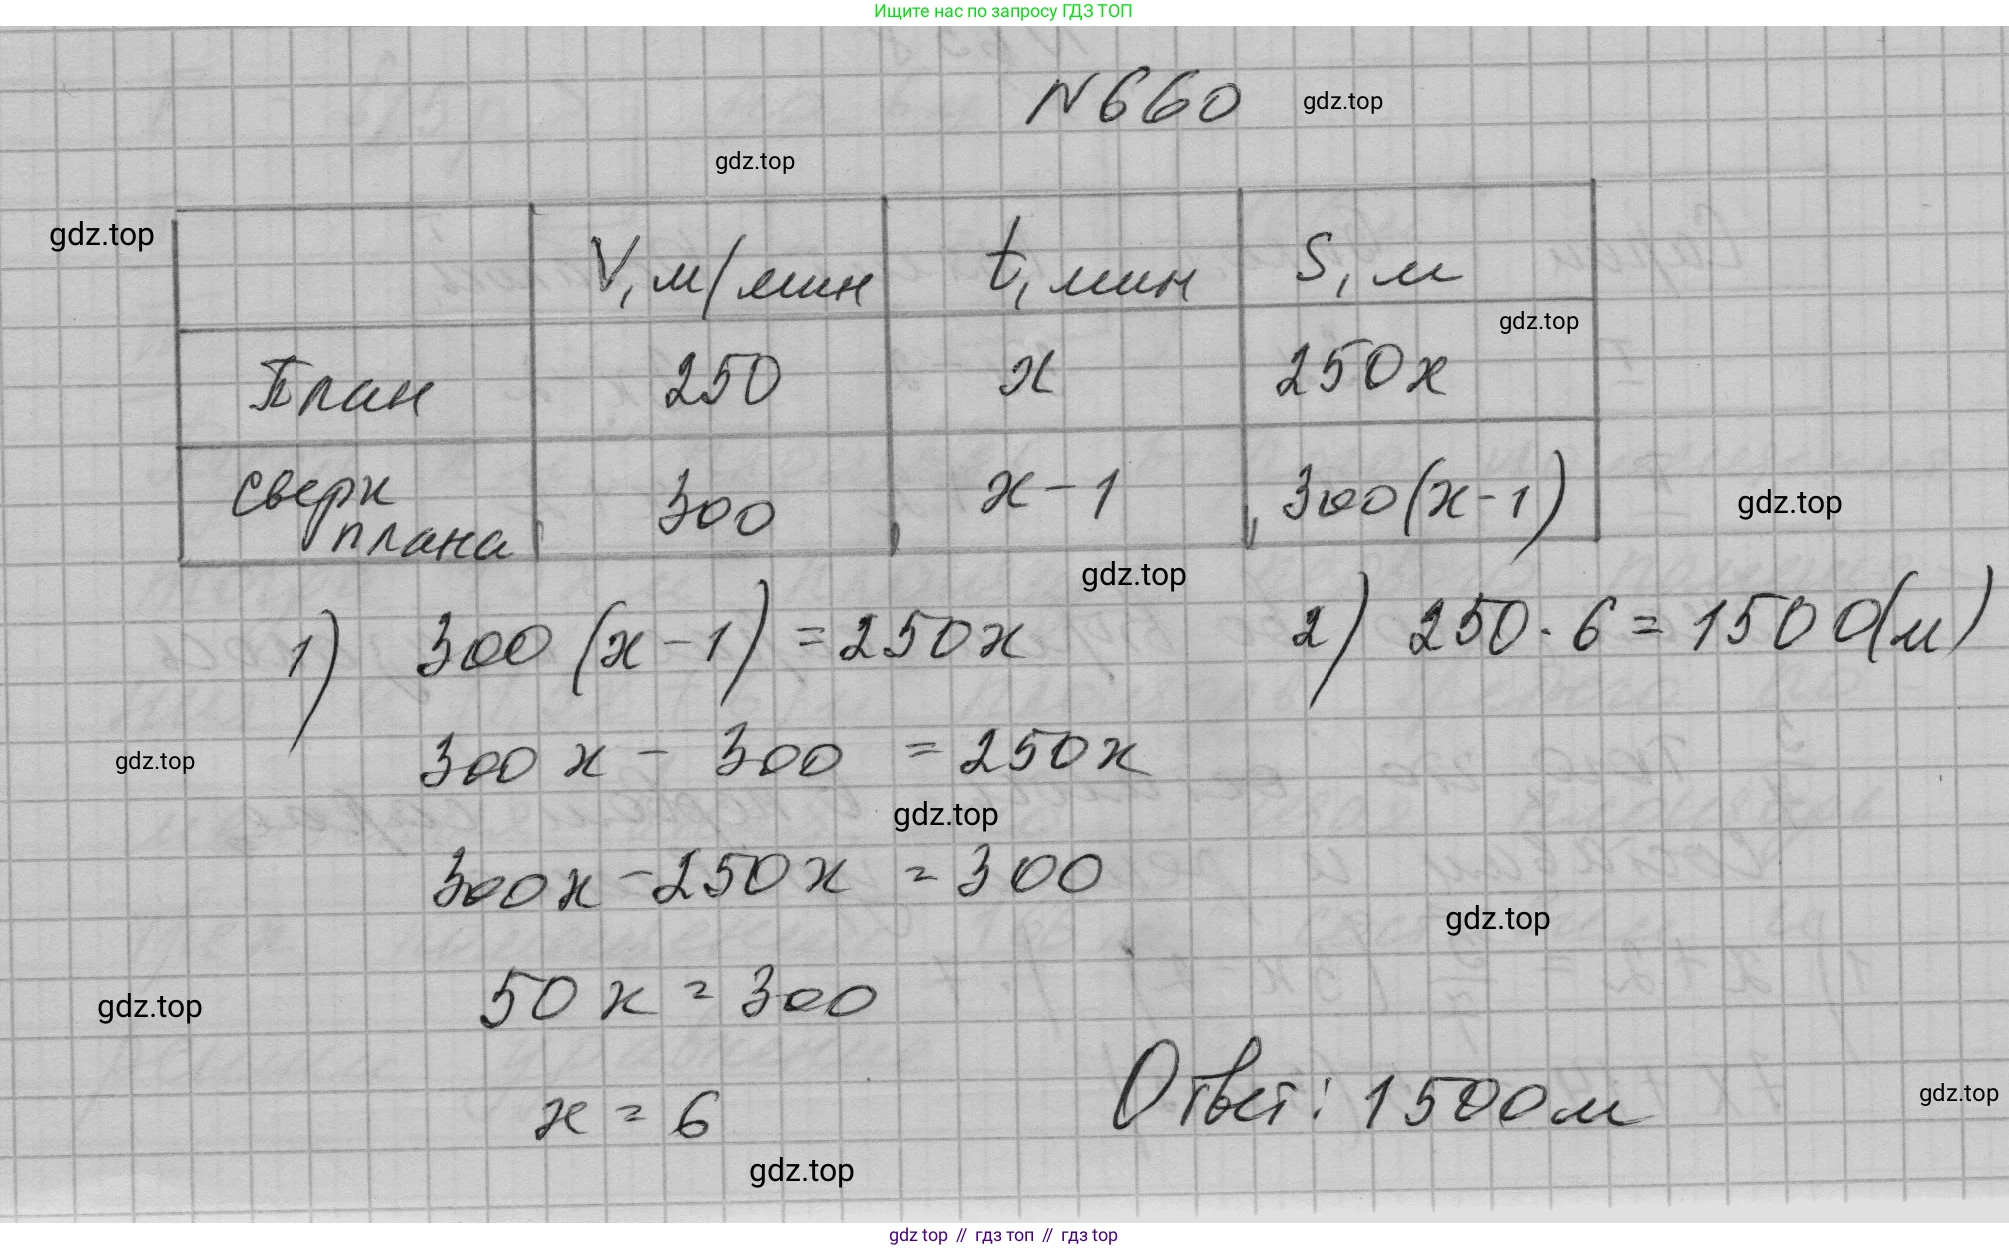 Ищите нас по запросу ГДЗ ТОП
N660 gdz.top
gdz.top
gdz.top
V, м/мин t, мин S, м
gdz.top
План 250 x 250x
сверх плана 300 x-1 300(x-1)
gdz.top
gdz.top
1) 300(x-1)=250x 2) 250·6=1500(м)
300x - 300 = 250x
gdz.top
gdz.top
300x-250x = 300
gdz.top
50x = 300
gdz.top
x = 6 Ответ: 1500м
gdz.top
gdz.top
gdz top // гдз топ // gdz top